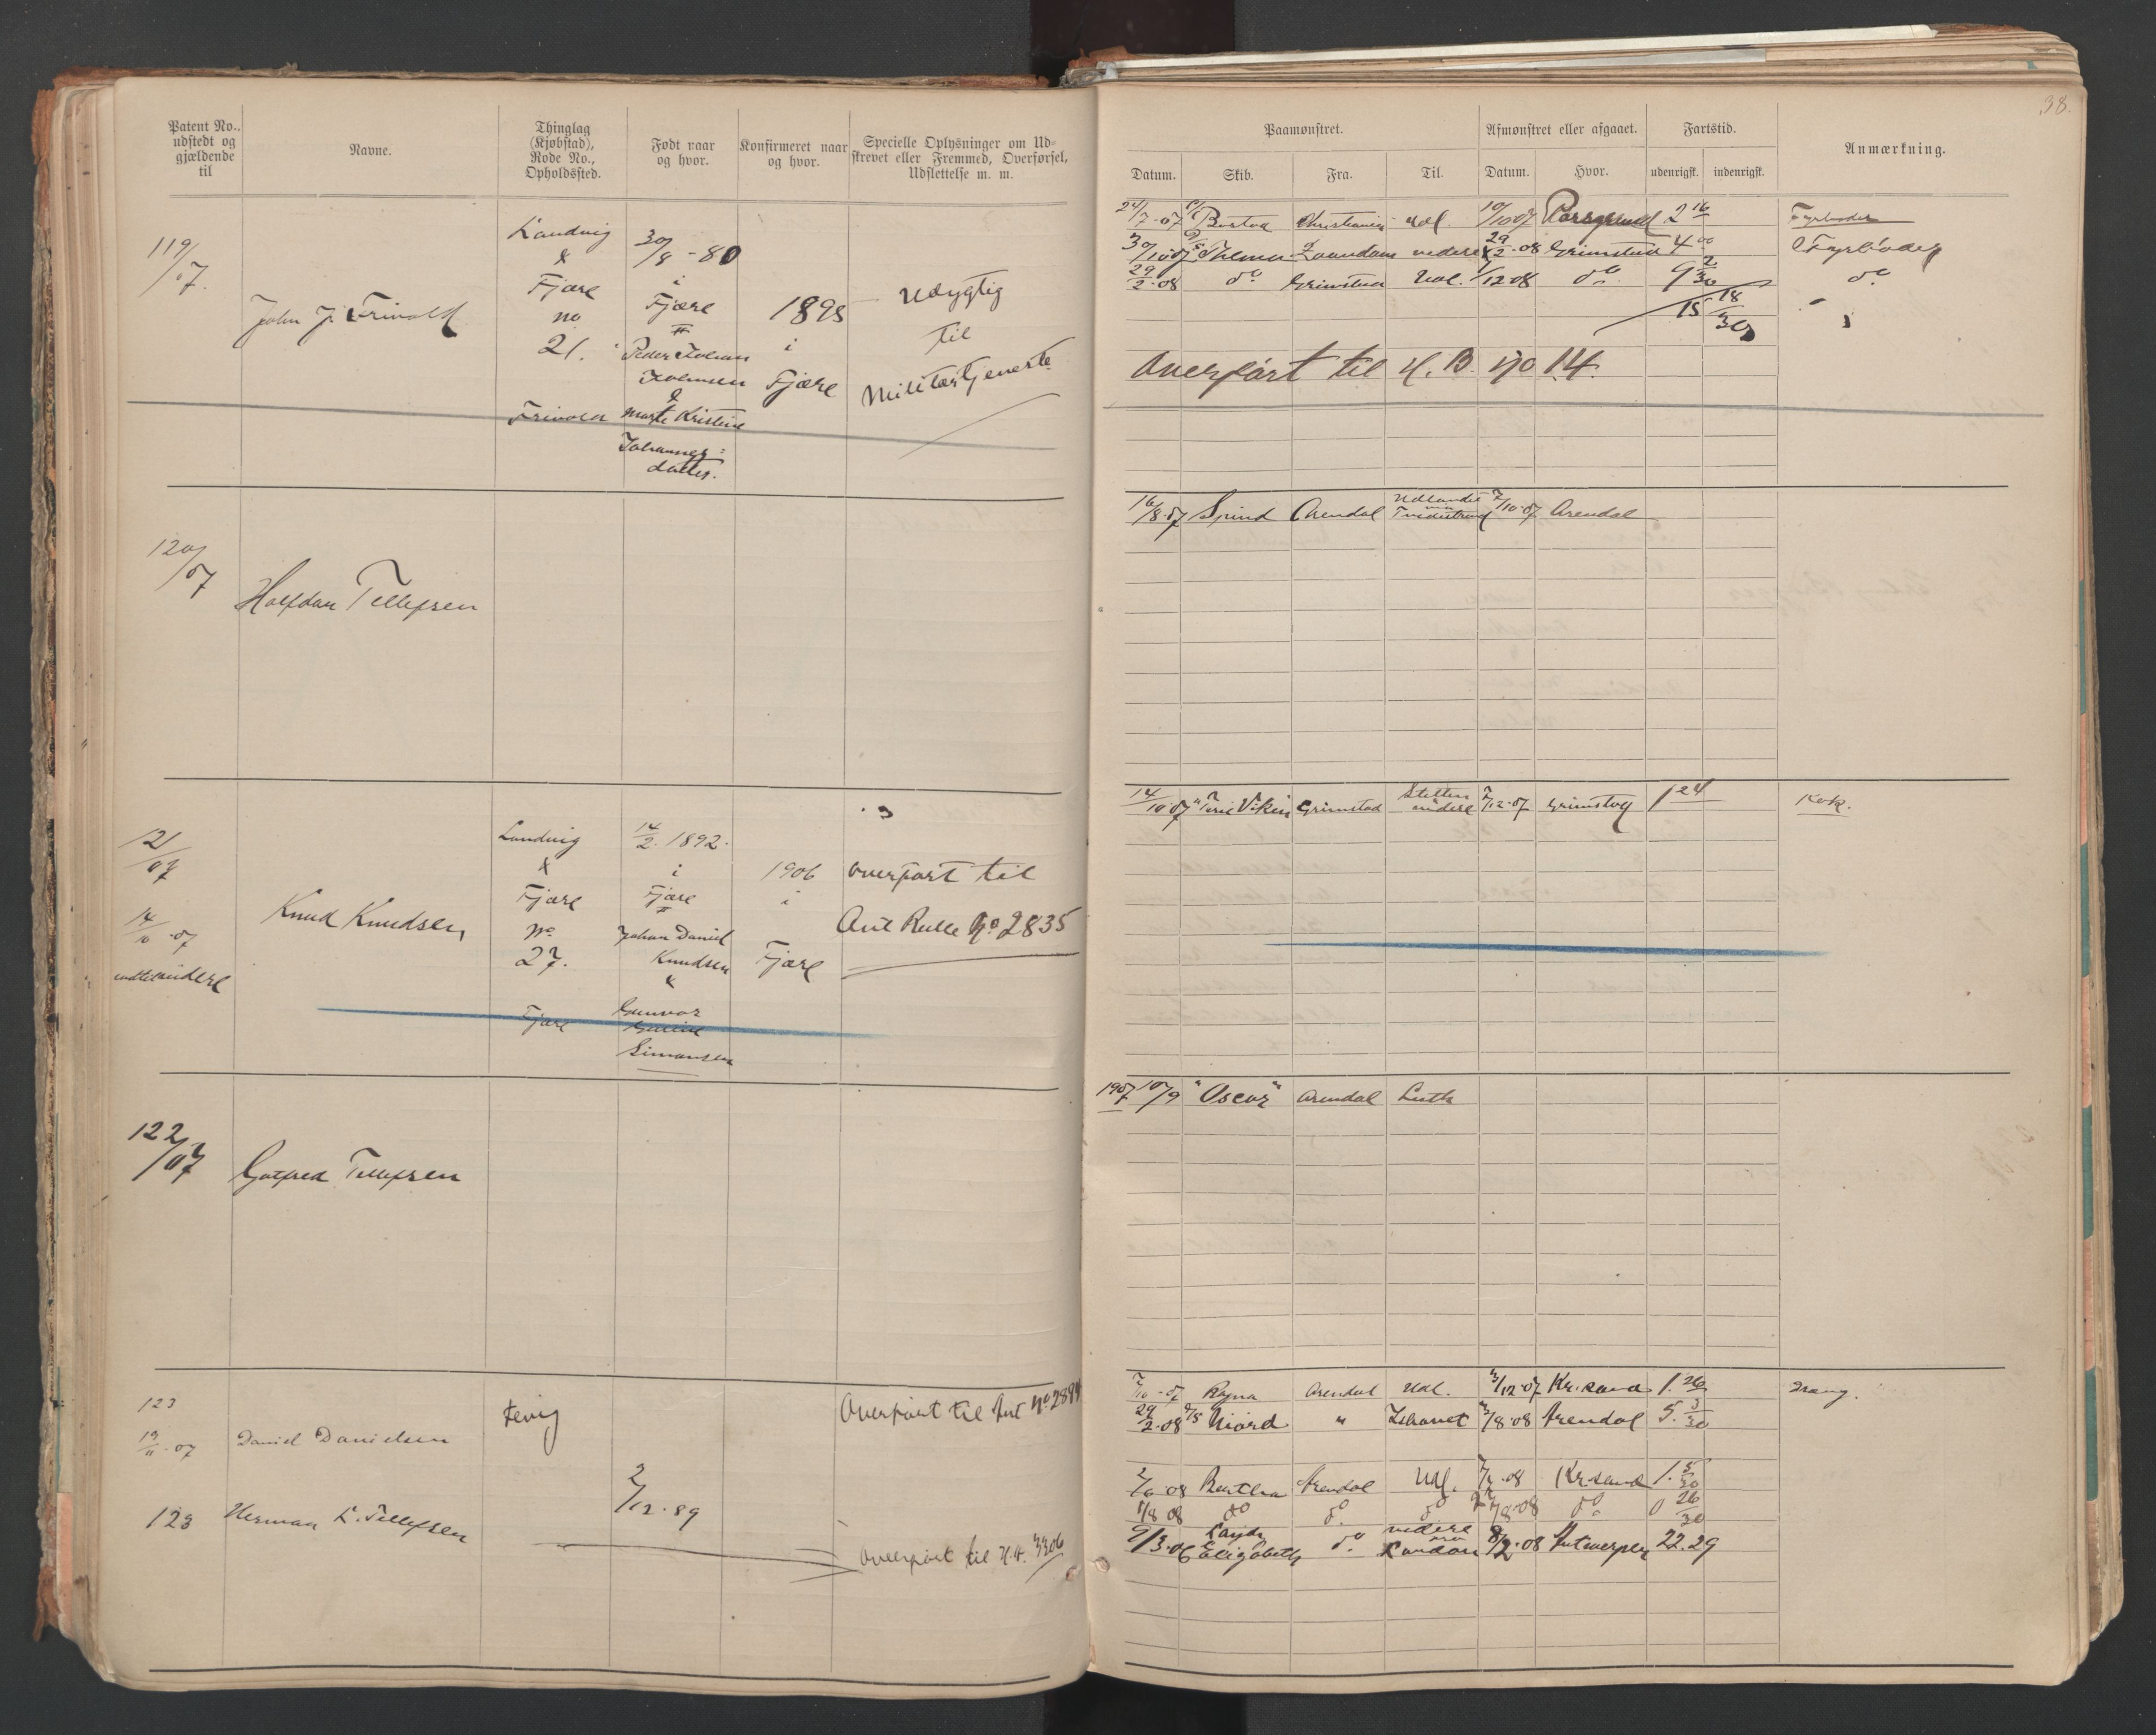 38.
Patent No., udstedt og gjældende til
Navne.
Thinglag (Kjøbstad), Rode No., Opholdssted.
Født naar og hvor.
Konfirmeret naar og hvor.
Specielle Oplysninger om Udskrevet eller Fremmed, Overførsel, Udslettelse m. m.
Paamønstret.
Afmønstret eller afgaaet.
Fartstid.
Anmærkning.
Datum.
Skib.
Fra.
Til.
Datum.
Hvor.
udenrigsk.
indenrigsk.
119/07.
John J. Frivold
Landvig
&
Fjære
no
21.
Frivold
30/8 - 80
i
Fjære
Peder Johan
Johnsen
&
Marte Kristine
Johannes=
datter.
1895
i
Fjære
Udygtig
til
Militærtjeneste
24/7-07 Christiania Udl. 10/10 07 Porsgrund 2 16 Fyrbøder
30/10 07 D/S Thelma Zaandam videre 29/2-08 Grimstad 4 00 Fyrbøder
29/2-08 do Grimstad Udl. 1/12 08 do 9 2/30 do
15 18/30
Overført til H. B. no 14.
120/07
Halfdan Tellefsen
16/8-07 Spind Arendal Udlandet Tvedestrand 7/10-07 Arendal
121/07
14/10-07
indtil videre
Knud Knudsen
Landvig
&
Fjære
No
27.
Fjære
14/2 1892.
i
Fjære
Johan Daniel
Knudsen
&
Gunvor
Simonsen
1906
i
Fjære
overført til
Ant Rulle No 2835
14/10-07 "Terje Viken Grimstad Stettin videre 7/12-07 Grimstad 1 24 Kok.
122/07
Gotfred Tellefsen
1907 10/9 "Oscar" Arendal Leith
123
19/11-07
Daniel Danielsen
Fevig
Overført til Ant No 2894
7/10-07 Ragna Arendal Udl. 3/12-07 Kr.sand 1. 26
29/2-08 D/S Njord " 3/8-08 Arendal 5. 5/30
123
Herman L. Tellefsen
2/12-89
overført til H.A. 3306
2/6-08 Bertha Arendal Udl. Kr.sand 1. 5/30
1/8 08 do do do do 0 26/30
9/3-06 Elizabeth do videre London 8/2-08 Antwerpen 22.29